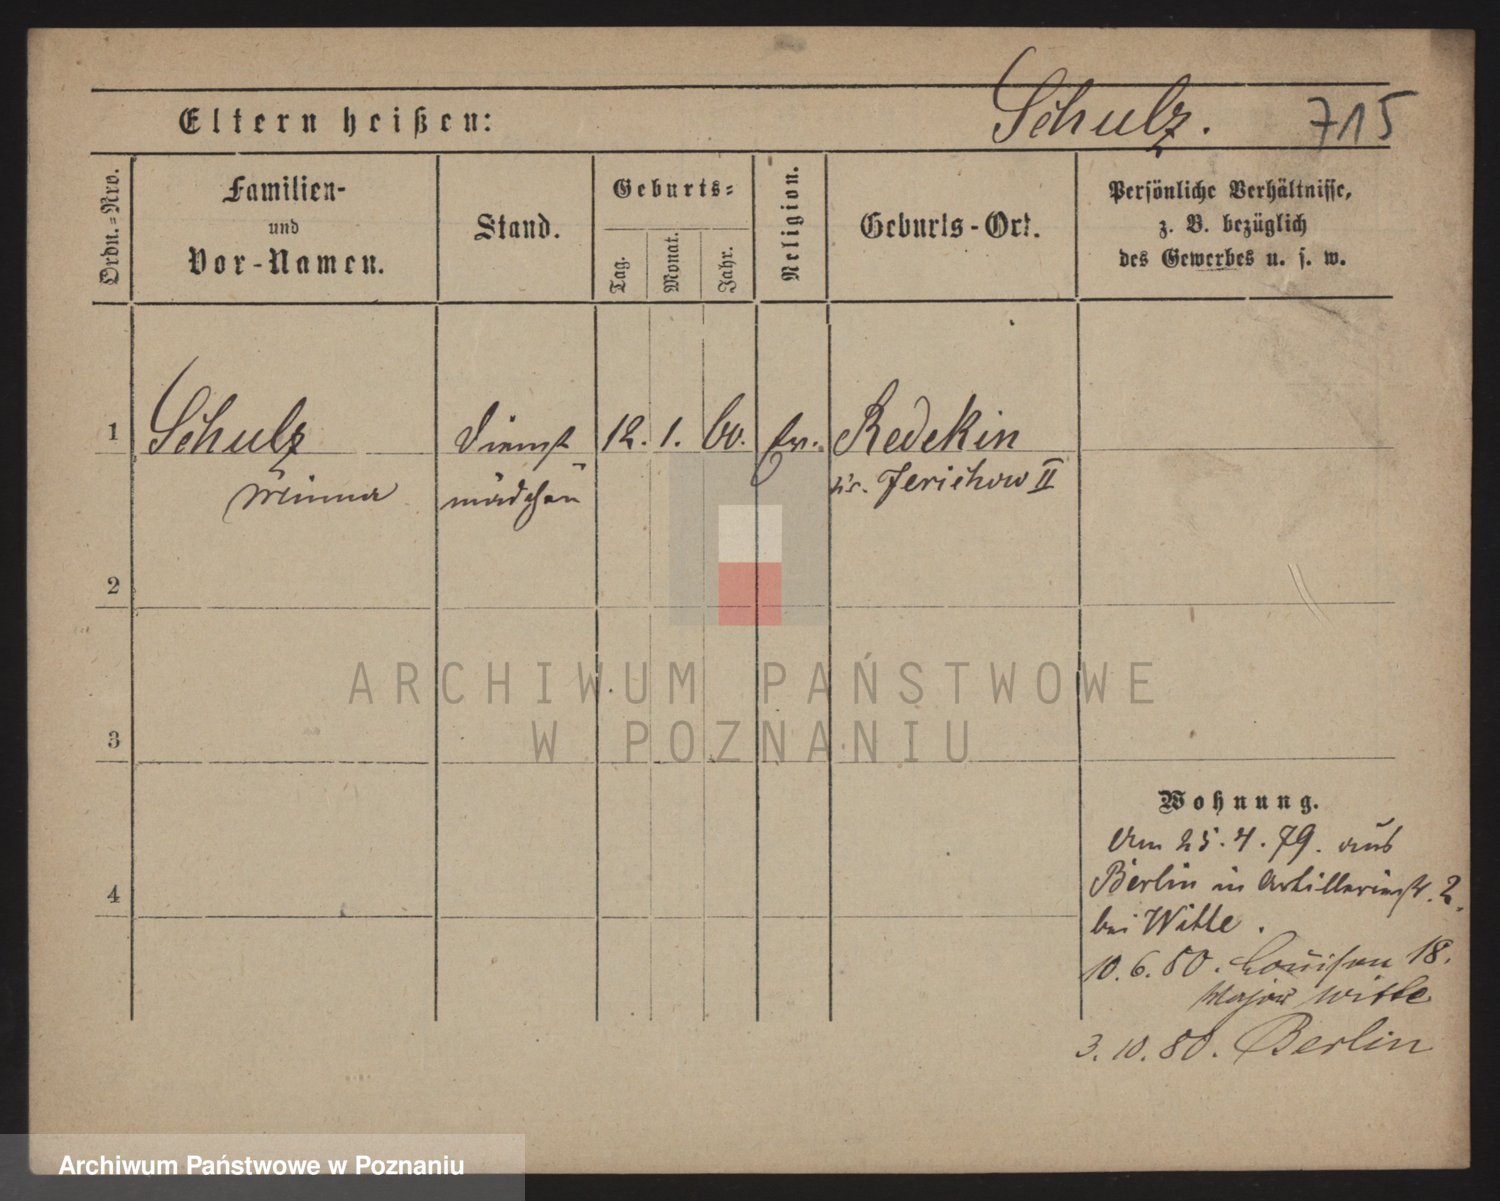 Schulz. 715
Eltern heißen:
Ordn.=Nro.
Familien-
und
Vor-Namen.
Stand.
Geburts=
Tag.
Monat.
Jahr.
Religion.
Geburts-Ort.
Persönliche Verhältnisse,
z. B. bezüglich
des Gewerbes u. s. w.
1 Schulz Dienst 12. 1. 60. ev. Redekin
Minna mädchen Kr. Jerichow II
2
3
4
Wohnung.
Am 25.4.79. aus
Berlin in Artilleriestr. 2.
bei Witte.
10.6.80. Louisen 18.
Major Witte
3.10.80. Berlin
ARCHIWUM PAŃSTWOWE
W POZNANIU
Archiwum Państwowe w Poznaniu